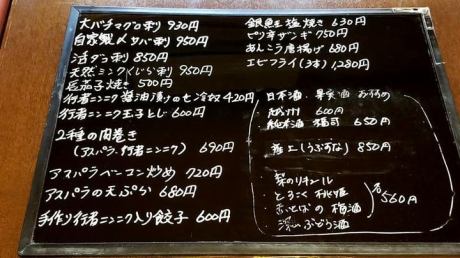 大バチマグロ刺 930円
自家製〆サバ刺 950円
活ダコ刺 850円
天然ミンクくじら刺 950円
茄子焼き 500円
行者ニンニク醤油漬けの冷奴 420円
行者ニンニク玉子とじ 600円
2種の肉巻き
(アスパラ、行者ニンニク) 690円
アスパラベーコン炒め 720円
アスパラの天ぷら 680円
手作り行者ニンニク入り餃子 600円
銀鮭塩焼き 630円
ピリ辛ザンギ 750円
あんこう唐揚げ 680円
エビフライ(3本) 1,280円
日本酒、果実酒
600円
純米酒 福司 650円
(うぶすな) 850円
・梨のリキュール
・とろこく桃姫
の梅酒
ぶどう酒
各560円